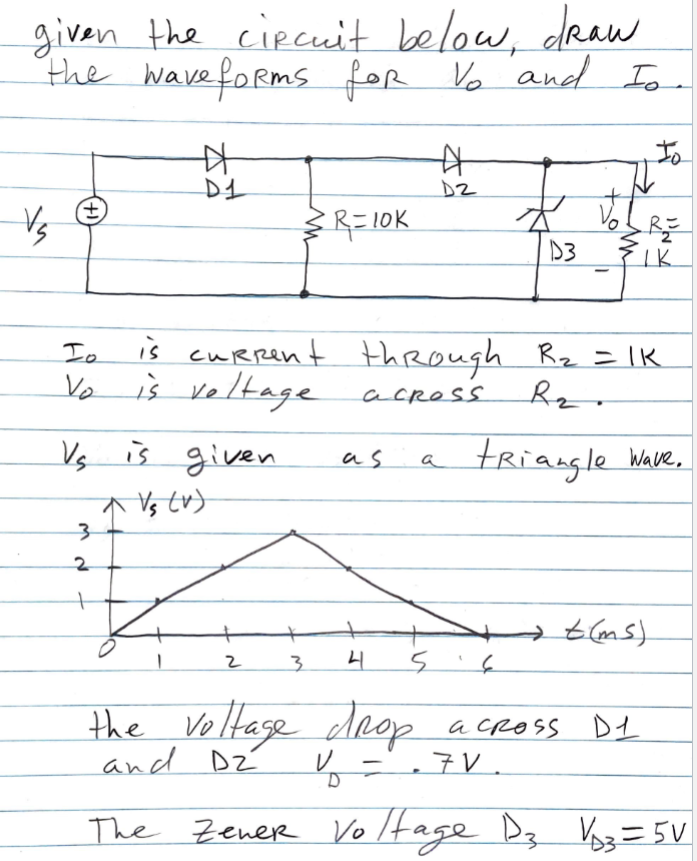 given the circuit below, draw
the waveforms for Vo and Io.
Io
D1
D2
Vs
R=10K
D3
+
Vo
-
R2=
1K
Io is current through R2 = 1K
Vo is voltage across R2.
Vs is given as a triangle wave.
Vs (V)
3
2
1
0
1 2 3 4 5 6
t(ms)
the voltage drop across D1
and D2 VD = .7V.
The Zener Voltage D3 VD3 = 5V